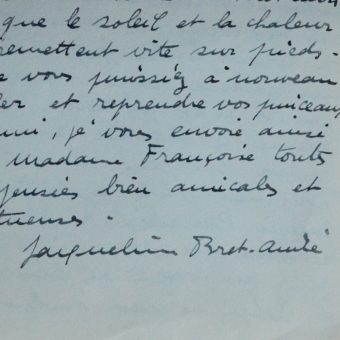 que le soleil et la chaleur
remettent vite sur pieds -
vous puissiez à nouveau
et reprendre vos pinceaux
, je vous envoie ainsi
madame Françoise toutes
pensées bien amicales et
tueuses.
Jacqueline Bret-André